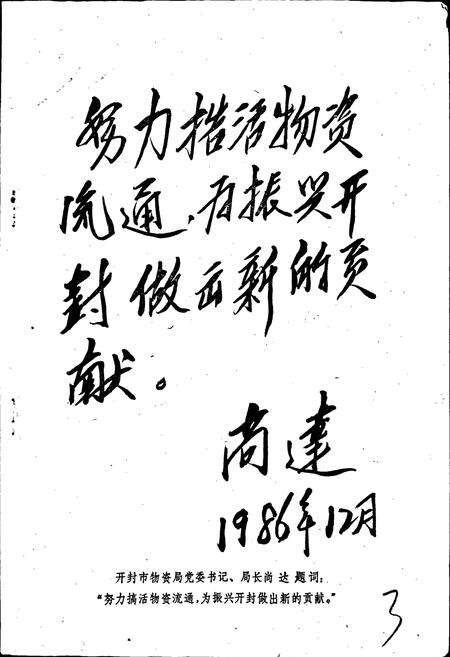 努力搞活物资
流通,为振兴开
封做出新的贡
献。
尚达
1986年12月
开封市物资局党委书记、局长尚 达 题词:
“努力搞活物资流通,为振兴开封做出新的贡献。”
3